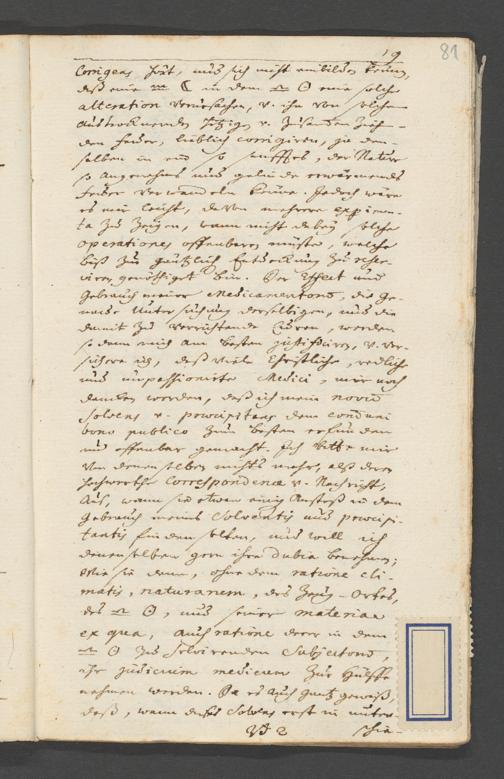 19
81
Corrigens hört, und sich nicht einbilden können,
daß eine ☾ in dem ☉ eine solche
alteration verursachen, v. ihn von
austrocknenden
den feuer, lieblich corrigiren, ja den-
selben in ein so, der Natur
so angenehmes und gelinde erwärmendes
feuer verwandeln könne. Jedoch wäre
es mir leicht, davon mehrere experimen-
ta zu zeigen, wann nicht dabey solche
operationes offenbaren müste, welche
biß zur gäntzlich Entdeckung zu reser-
viren genöthiget bin. Der Effect und
Gebrauch meiner Medicamentens, die ge-
naue Untersuchung derselbigen, und die
damit zu verrichtende Curen, werden
so dann mich am besten justificiren, v. ver-
sichere ich, daß viele Christliche, redliche
und unpassionirte Medici, mir noch
dancken werden, daß ich mein novū
solvens v. praecipitans dem communi
bono publico zum besten erfunden
und offenbar gemacht. Ich bitte mir
von denenselben nichts mehr, alß dero
hochwerthe Correspondence v. Nachricht,
aus, wann sie etwan einig Anstoß in dem
Gebrauch meines Solventis und praecipi-
tantis finden solten, und will ich
denenselben gern ihre Dubia benehmen;
Wie sie dann, ohne dem ratione cli-
matis, naturarum, des Orthes,
des ☉, und seiner materiae
ex qua, auch ratione derer in dem
☉ zu solvirenden Subjectorū,
ihr judicium medicum zur Hülffe
nehmen werden. Da es auch gantz gewiß,
daß, wann dieses Solvens erst in unter-
schie-